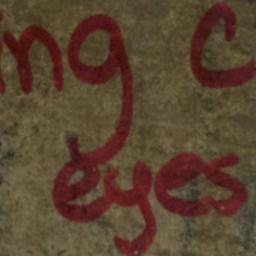 ing c
eyes